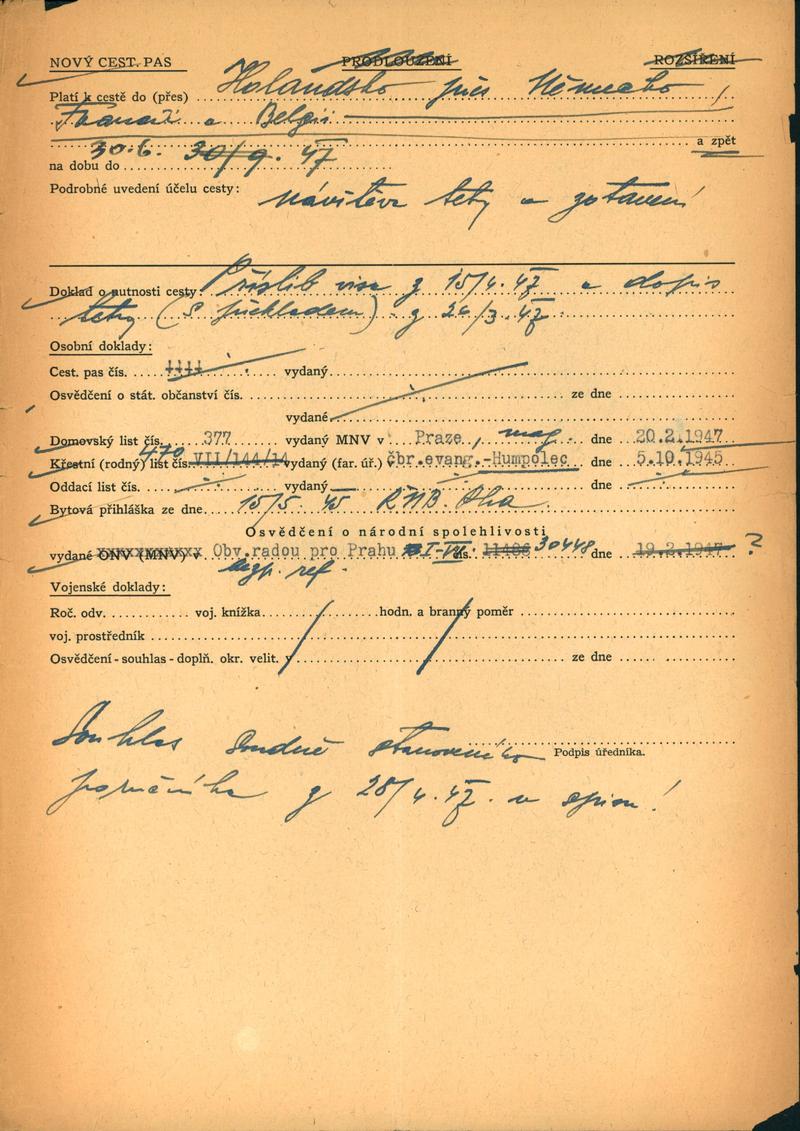 NOVÝ CEST. PAS PRODLOUŽENÍ ROZŠÍŘENÍ
Platí k cestě do (přes) Holandsko přes Německo,
Francii a Belgii
a zpět
na dobu do 30.6. 30/9. 47
Podrobné uvedení účelu cesty: návštěva tety a zotavení
Doklad o nutnosti cesty: Příslib visa z 15/4. 47 a dopis
tety (s překladem) z 24/3. 47.
Osobní doklady:
Cest. pas čís. vydaný
Osvědčení o stát. občanství čís. ze dne
vydané
Domovský list čís. 377 vydaný MNV v Praze, mag. dne 20.2.1947
Křestní (rodný) list čís. 470 VII/144/14 vydaný (far. úř.) čbr.evang.-Humpolec dne 5.10.1945
Oddací list čís. vydaný dne
Bytová přihláška ze dne 15/5. 45 RNB. Pha
Osvědčení o národní spolehlivosti
vydané ONV (MNV) v Obv.radou pro Prahu I-VII. čís. 11486 30448 dne 19.2.1947 ?
mgp. ref.
Vojenské doklady:
Roč. odv. voj. knížka hodn. a branný poměr
voj. prostředník
Osvědčení - souhlas - doplň. okr. velit. v ze dne
Souhlas soudně stanoveného
Podpis úředníka.
poručníka z 28/4. 47. v spisu!